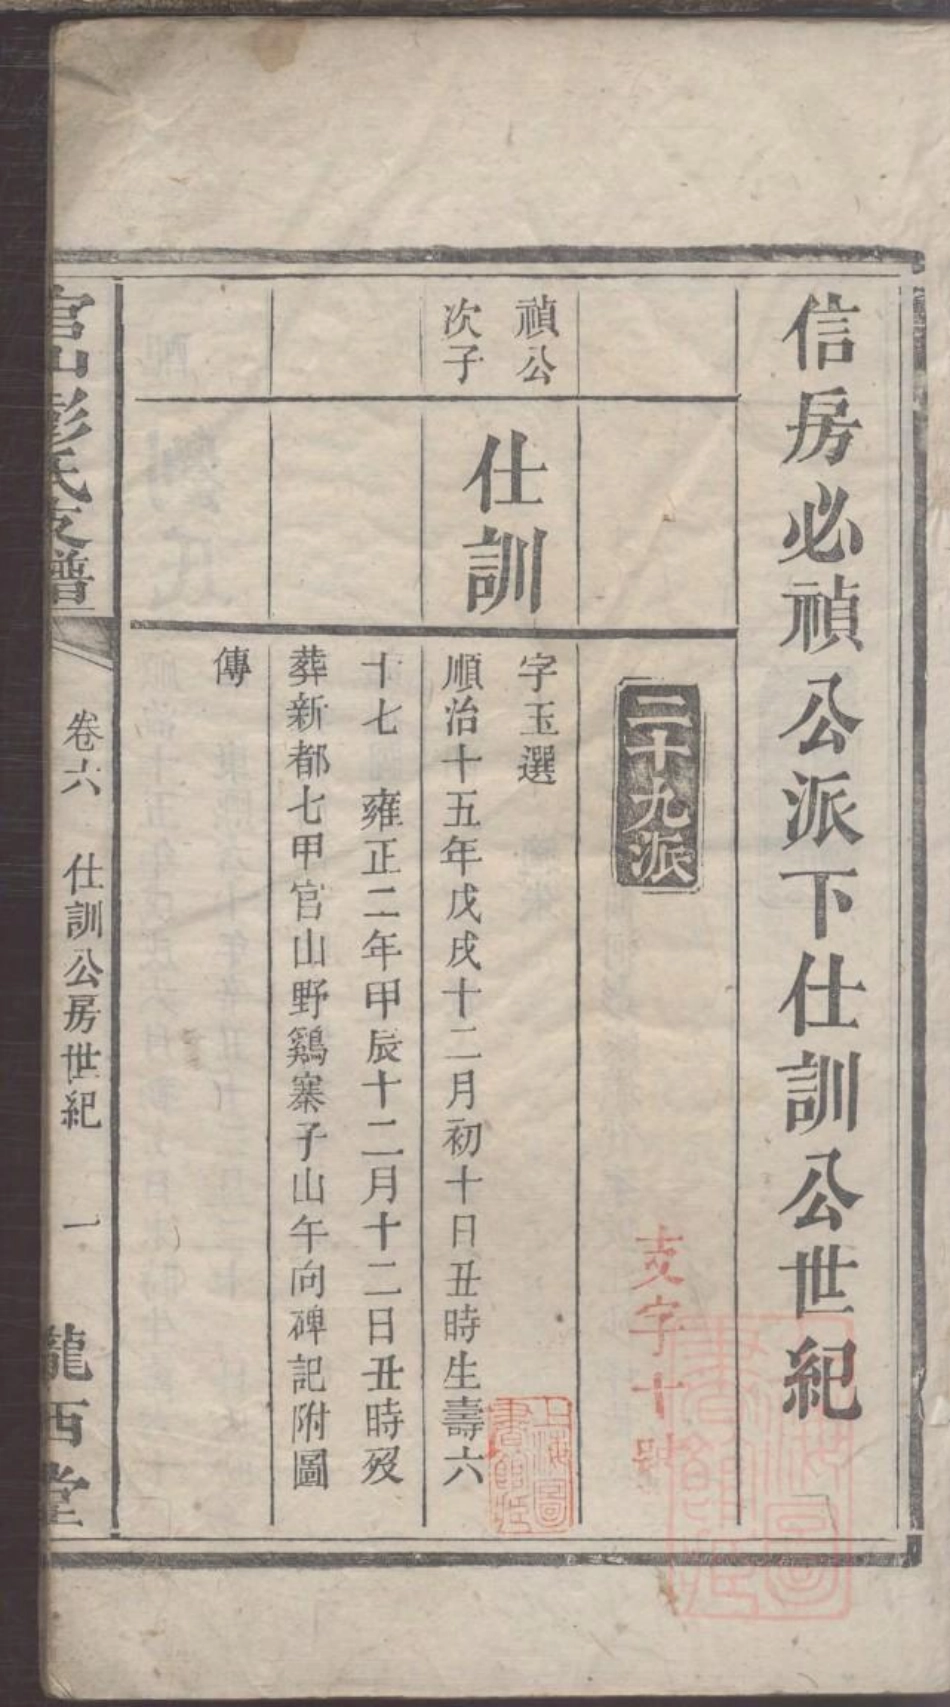 信房必禎公派下仕訓公世紀
二十九派
支字十號
禎公
次子
仕訓
字玉選
順治十五年戊戌十二月初十日丑時生壽六
十七　雍正二年甲辰十二月十二日丑時歿
葬新都七甲官山野鷄寨子山午向碑記附圖
傳
上海圖書館藏
官山彭氏支譜
卷六　仕訓公房世紀　一　隴西堂